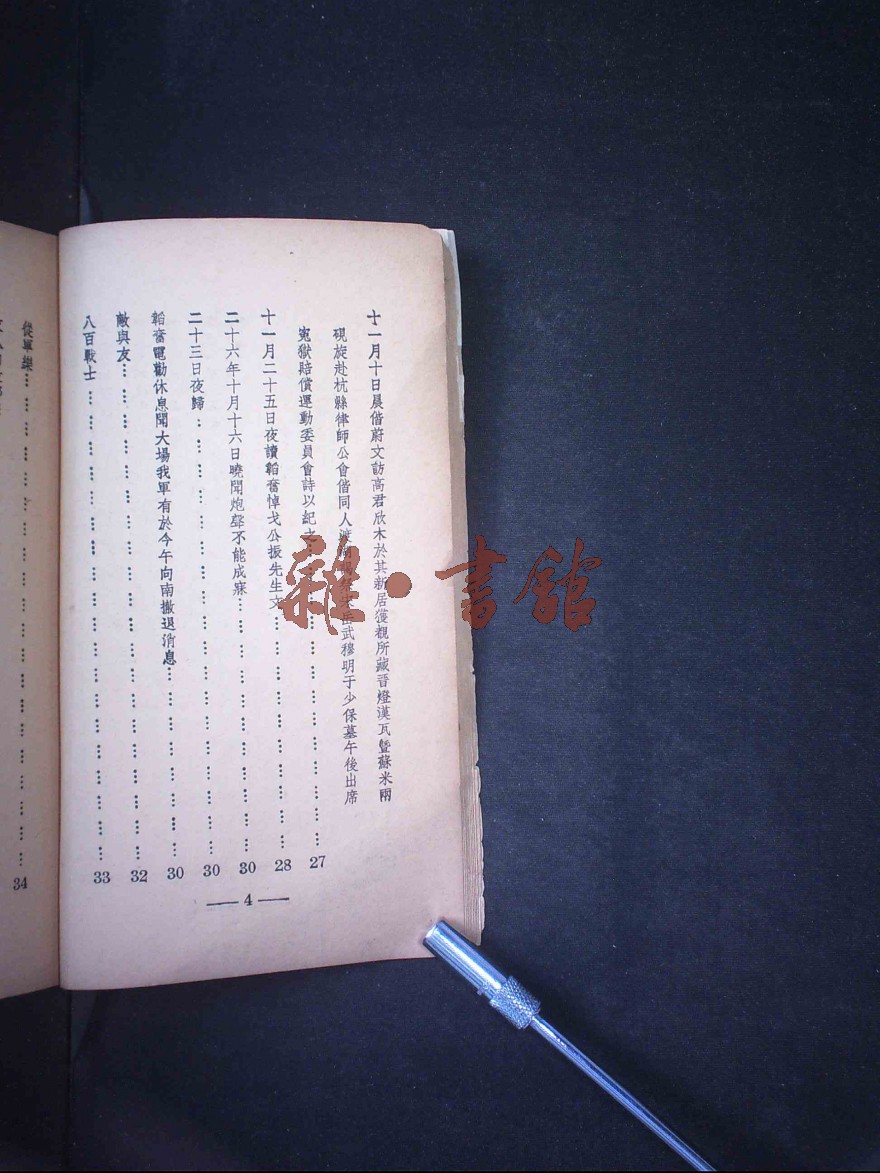 十一月十日晨偕蔚文訪高君欣木於其新居獲觀所藏晉燈漢瓦暨蘇米兩
硯旋赴杭縣律師公會偕同人渡
岳武穆明于少保墓午後出席
寃獄賠償運動委員會詩以紀之………………27
十一月二十五日夜讀韜奮悼戈公振先生文………………28
二十六年十月十六日曉聞炮聲不能成寐………………30
二十三日夜歸………………30
韜奮電勸休息聞大場我軍有於今午向南撤退消息………………30
敵與友………………32
八百戰士………………33
— 4 —
從軍樂………………34
雜·書館